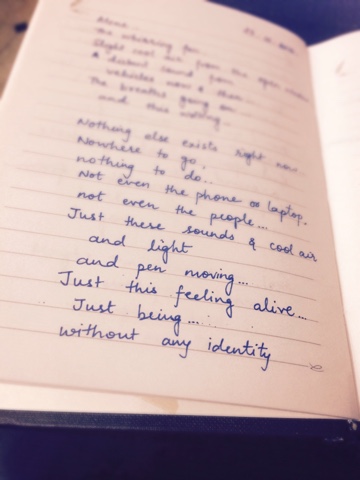 Alone...
the whirring fan...
Slight cool air from the open
A distant sound from
vehicles now & then...
The breaths going on
and this moving...
Nothing else exists right now...
Nowhere to go,
nothing to do..
Not even the phone or laptop,
not even the people...
Just these sounds & cool air
and light
and pen moving...
Just this feeling alive...
Just being...
without any identity